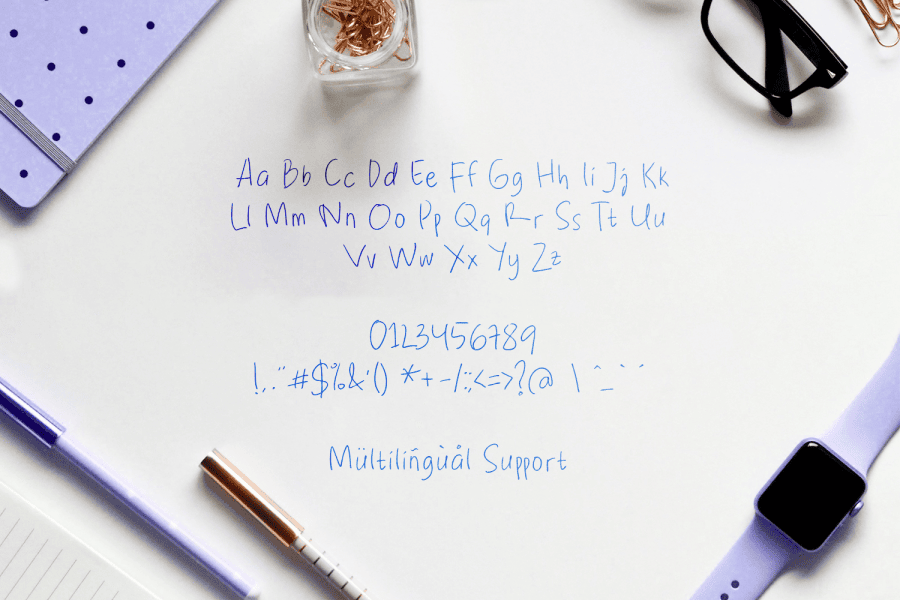 Aa Bb Cc Dd Ee Ff Gg Hh Ii Jj Kk
Ll Mm Nn Oo Pp Qq Rr Ss Tt Uu
Vv Ww Xx Yy Zz
0123456789
!,.¨#$%&'() *+-/:;<=>?@ \ ^_`` ´
Mültilíñgùâl Support